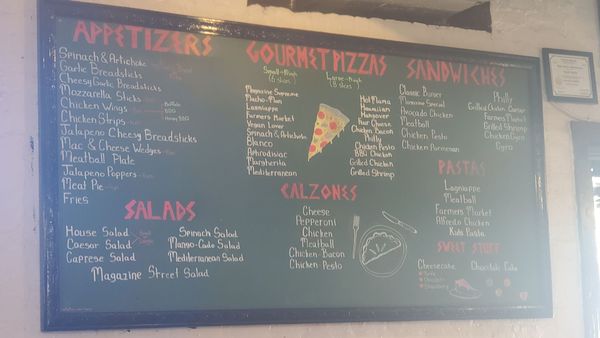 APPETIZERS
Spinach & Artichoke
Garlic Breadsticks
Cheesy Garlic Breadsticks
Mozzarella Sticks
Chicken Wings
Buffalo
BBQ
Honey BBQ
Chicken Strips
Jalapeno Cheesy Breadsticks
Mac & Cheese Wedges
Meatball Plate
Jalapeno Poppers
Meat Pie
Fries
SALADS
House Salad
Caesar Salad
Caprese Salad
Spinach Salad
Mango-Cado Salad
Mediterranean Salad
Magazine Street Salad
GOURMET PIZZAS
Small-
Large-
Magazine Supreme
Macho-Man
Lagniappe
Farmers Market
Vegan Lover
Spinach & Artichoke
Blanco
Aphrodisiac
Margherita
Mediterranean
Hot Mama
Hawaiian
Hangover
Four Cheese
Chicken Bacon
Philly
Chicken Pesto
BBQ Chicken
Grilled Chicken
Grilled Shrimp
CALZONES
Cheese
Pepperoni
Chicken
Meatball
Chicken-Bacon
Chicken-Pesto
SANDWICHES
Classic Burger
Magazine Special
Avocado Chicken
Meatball
Chicken Pesto
Chicken Parmesan
Philly
Grilled Chicken Caesar
Farmers Market
Grilled Shrimp
Chicken Gyro
Gyro
PASTAS
Lagniappe
Meatball
Farmers Market
Alfredo Chicken
Kids Pasta
SWEET STUFF
Cheesecake
Chocolate Cake
Strawberry